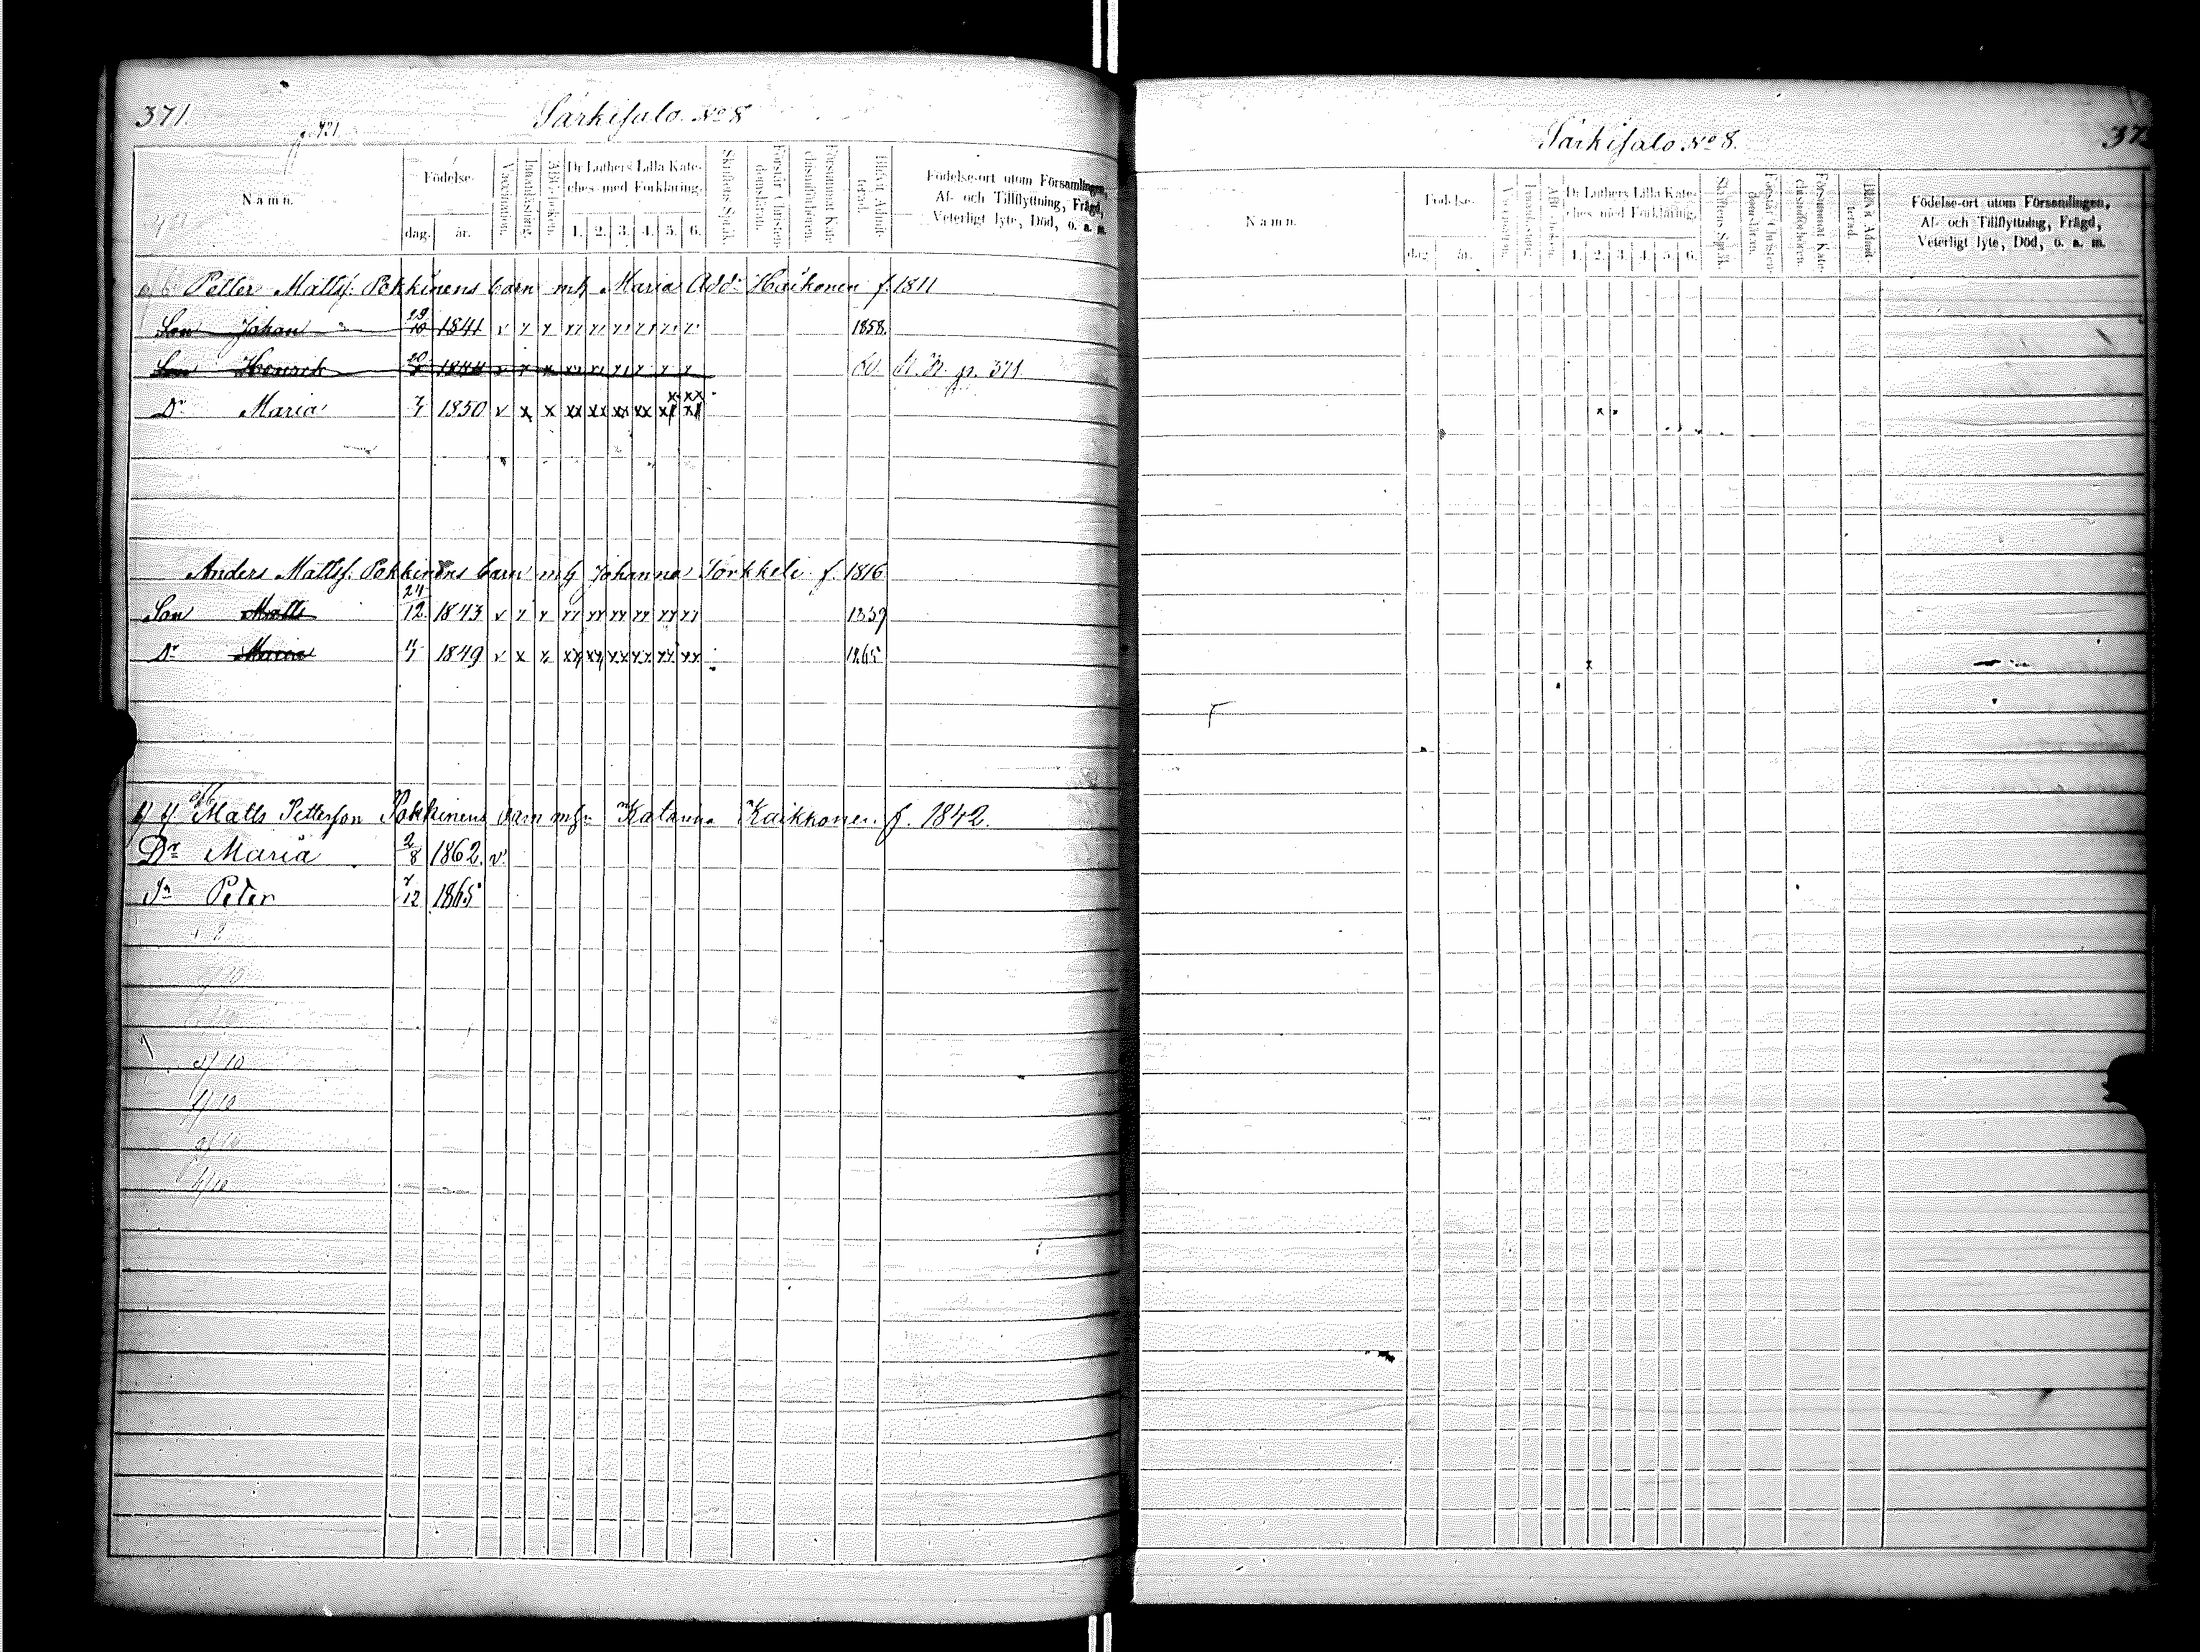 371.
Särkisalo. No 8
Namn.
Födelse-
dag. år.
Vaccination.
Innanläsning.
ABC-boken.
Dr Luthers Lilla Kate-
ches med Förklaring.
1. 2. 3. 4. 5. 6.
Skriftens Språk.
Förstår Christen-
domsläran.
Försummat Kate-
chismiförhören.
Blifvit Admit-
terad.
Födelse-ort utom Församlingen,
Af- och Tillflyttning, Frägd,
Veterligt lyte, Död, o. a. m.
Petter Mattsf. Pokkinens barn mh Maria Add: Haikonen f. 1811
Son Johan 10 1841 v x x xx xx xx xx xx x 1858.
Son Henrik 20 1844 v x x xx xx xx x x x p. 371
Dr Maria 1850 v x x xx xx xx xx xx xx
Anders Mattsf. Pokkinens barn mh Johanna Torkkeli f. 1816
Son Matts 24/12 1843 v x x xx xx xx xx xx xx 1859
Dr Maria 1849 v x x xx xx xx xx xx xx 1865
Matts Petterson Pokkinens barn mh Katarina Kaikkonen f. 1842.
Dr Maria 2/8 1862. v.
Sn Peter 7/12 1865
Särkisalo No 8.
Namn.
Födelse-
dag år.
Vaccination.
Innanläsning.
ABC-boken.
Dr Luthers Lilla Kate-
ches med Förklaring.
1. 2. 3. 4. 5. 6.
Skriftens Språk.
Förstår Christen-
domsläran.
Försummat Kate-
chismiförhören.
Blifvit Admit-
terad.
Födelse-ort utom Församlingen,
Af- och Tillflyttning, Frägd,
Veterligt lyte, Död, o. a. m.